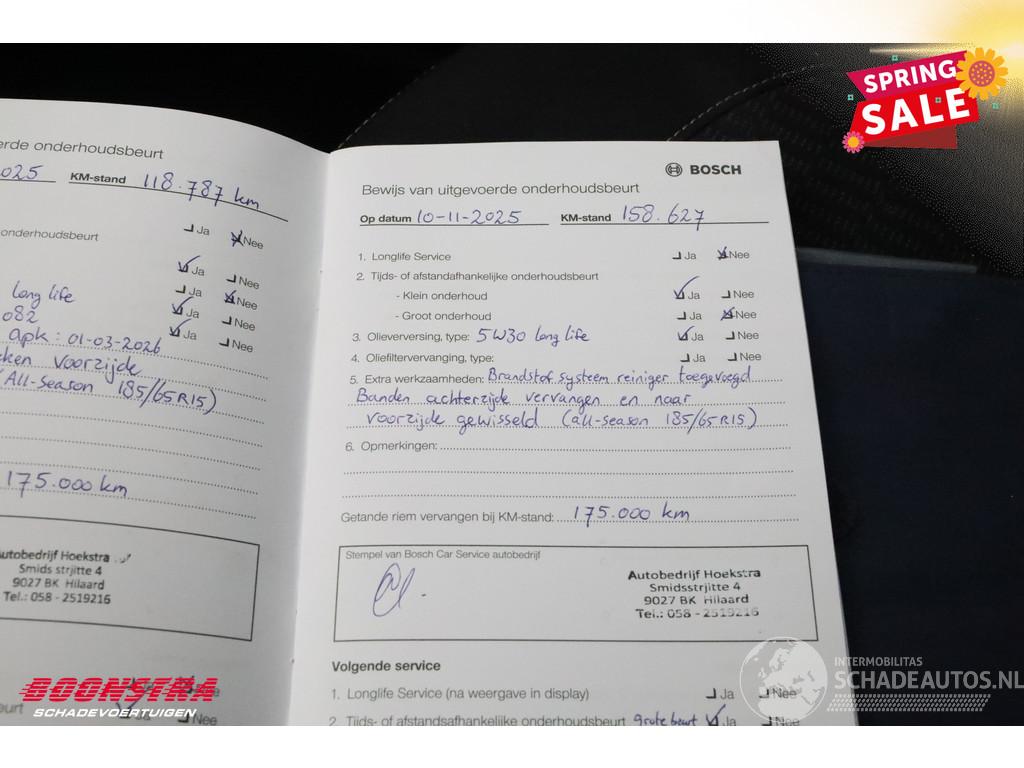 SPRING
SALE
erde onderhoudsbeurt
2025 KM-stand 118.787 km
onderhoudsbeurt
Ja Nee
Ja Nee
long life Ja Nee
082 Ja Nee
apk: 01-03-2026 Ja Nee
ken voorzijde
(All-season 185/65R15)
175.000 km
Autobedrijf Hoekstra
Smids strjitte 4
9027 BK Hilaard
Tel.: 058 - 2519216
eurt Nee
BOSCH
Bewijs van uitgevoerde onderhoudsbeurt
Op datum 10-11-2025 KM-stand 158.627
1. Longlife Service Ja Nee
2. Tijds- of afstandafhankelijke onderhoudsbeurt
- Klein onderhoud Ja Nee
- Groot onderhoud Ja Nee
3. Olieverversing, type: 5W30 long life Ja Nee
4. Oliefiltervervanging, type: Ja Nee
5. Extra werkzaamheden: Brandstof systeem reiniger toegevoegd
Banden achterzijde vervangen en naar
voorzijde gewisseld (all-season 185/65R15)
6. Opmerkingen:
Getande riem vervangen bij KM-stand: 175.000 km
Stempel van Bosch Car Service autobedrijf
Autobedrijf Hoekstra
Smidsstrjitte 4
9027 BK Hilaard
Tel.: 058 - 2519216
Volgende service
1. Longlife Service (na weergave in display) Ja Nee
2. Tijds- of afstandsafhankelijke onderhoudsbeurt grote beurt Ja Nee
BOONSTRA
SCHADEVOERTUIGEN
INTERMOBILITAS
SCHADEAUTOS.NL